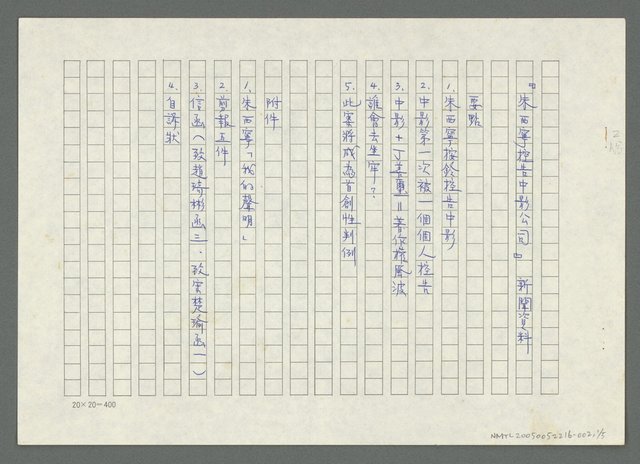 『朱西寧控告中影公司』新聞資料
要點
1、朱西寧按鈴控告中影
2、中影第一次被一個個人控告
3、中影+丁善璽=著作權風波
4、誰會去坐牢?
5、此案將成為首創性判例
附件
1、朱西寧「我的聲明」
2、剪報五件
3、信函(致趙琦彬函三、致宋楚瑜函一)
4、自訴狀
20×20=400
NMTL20050052216-002 1/5